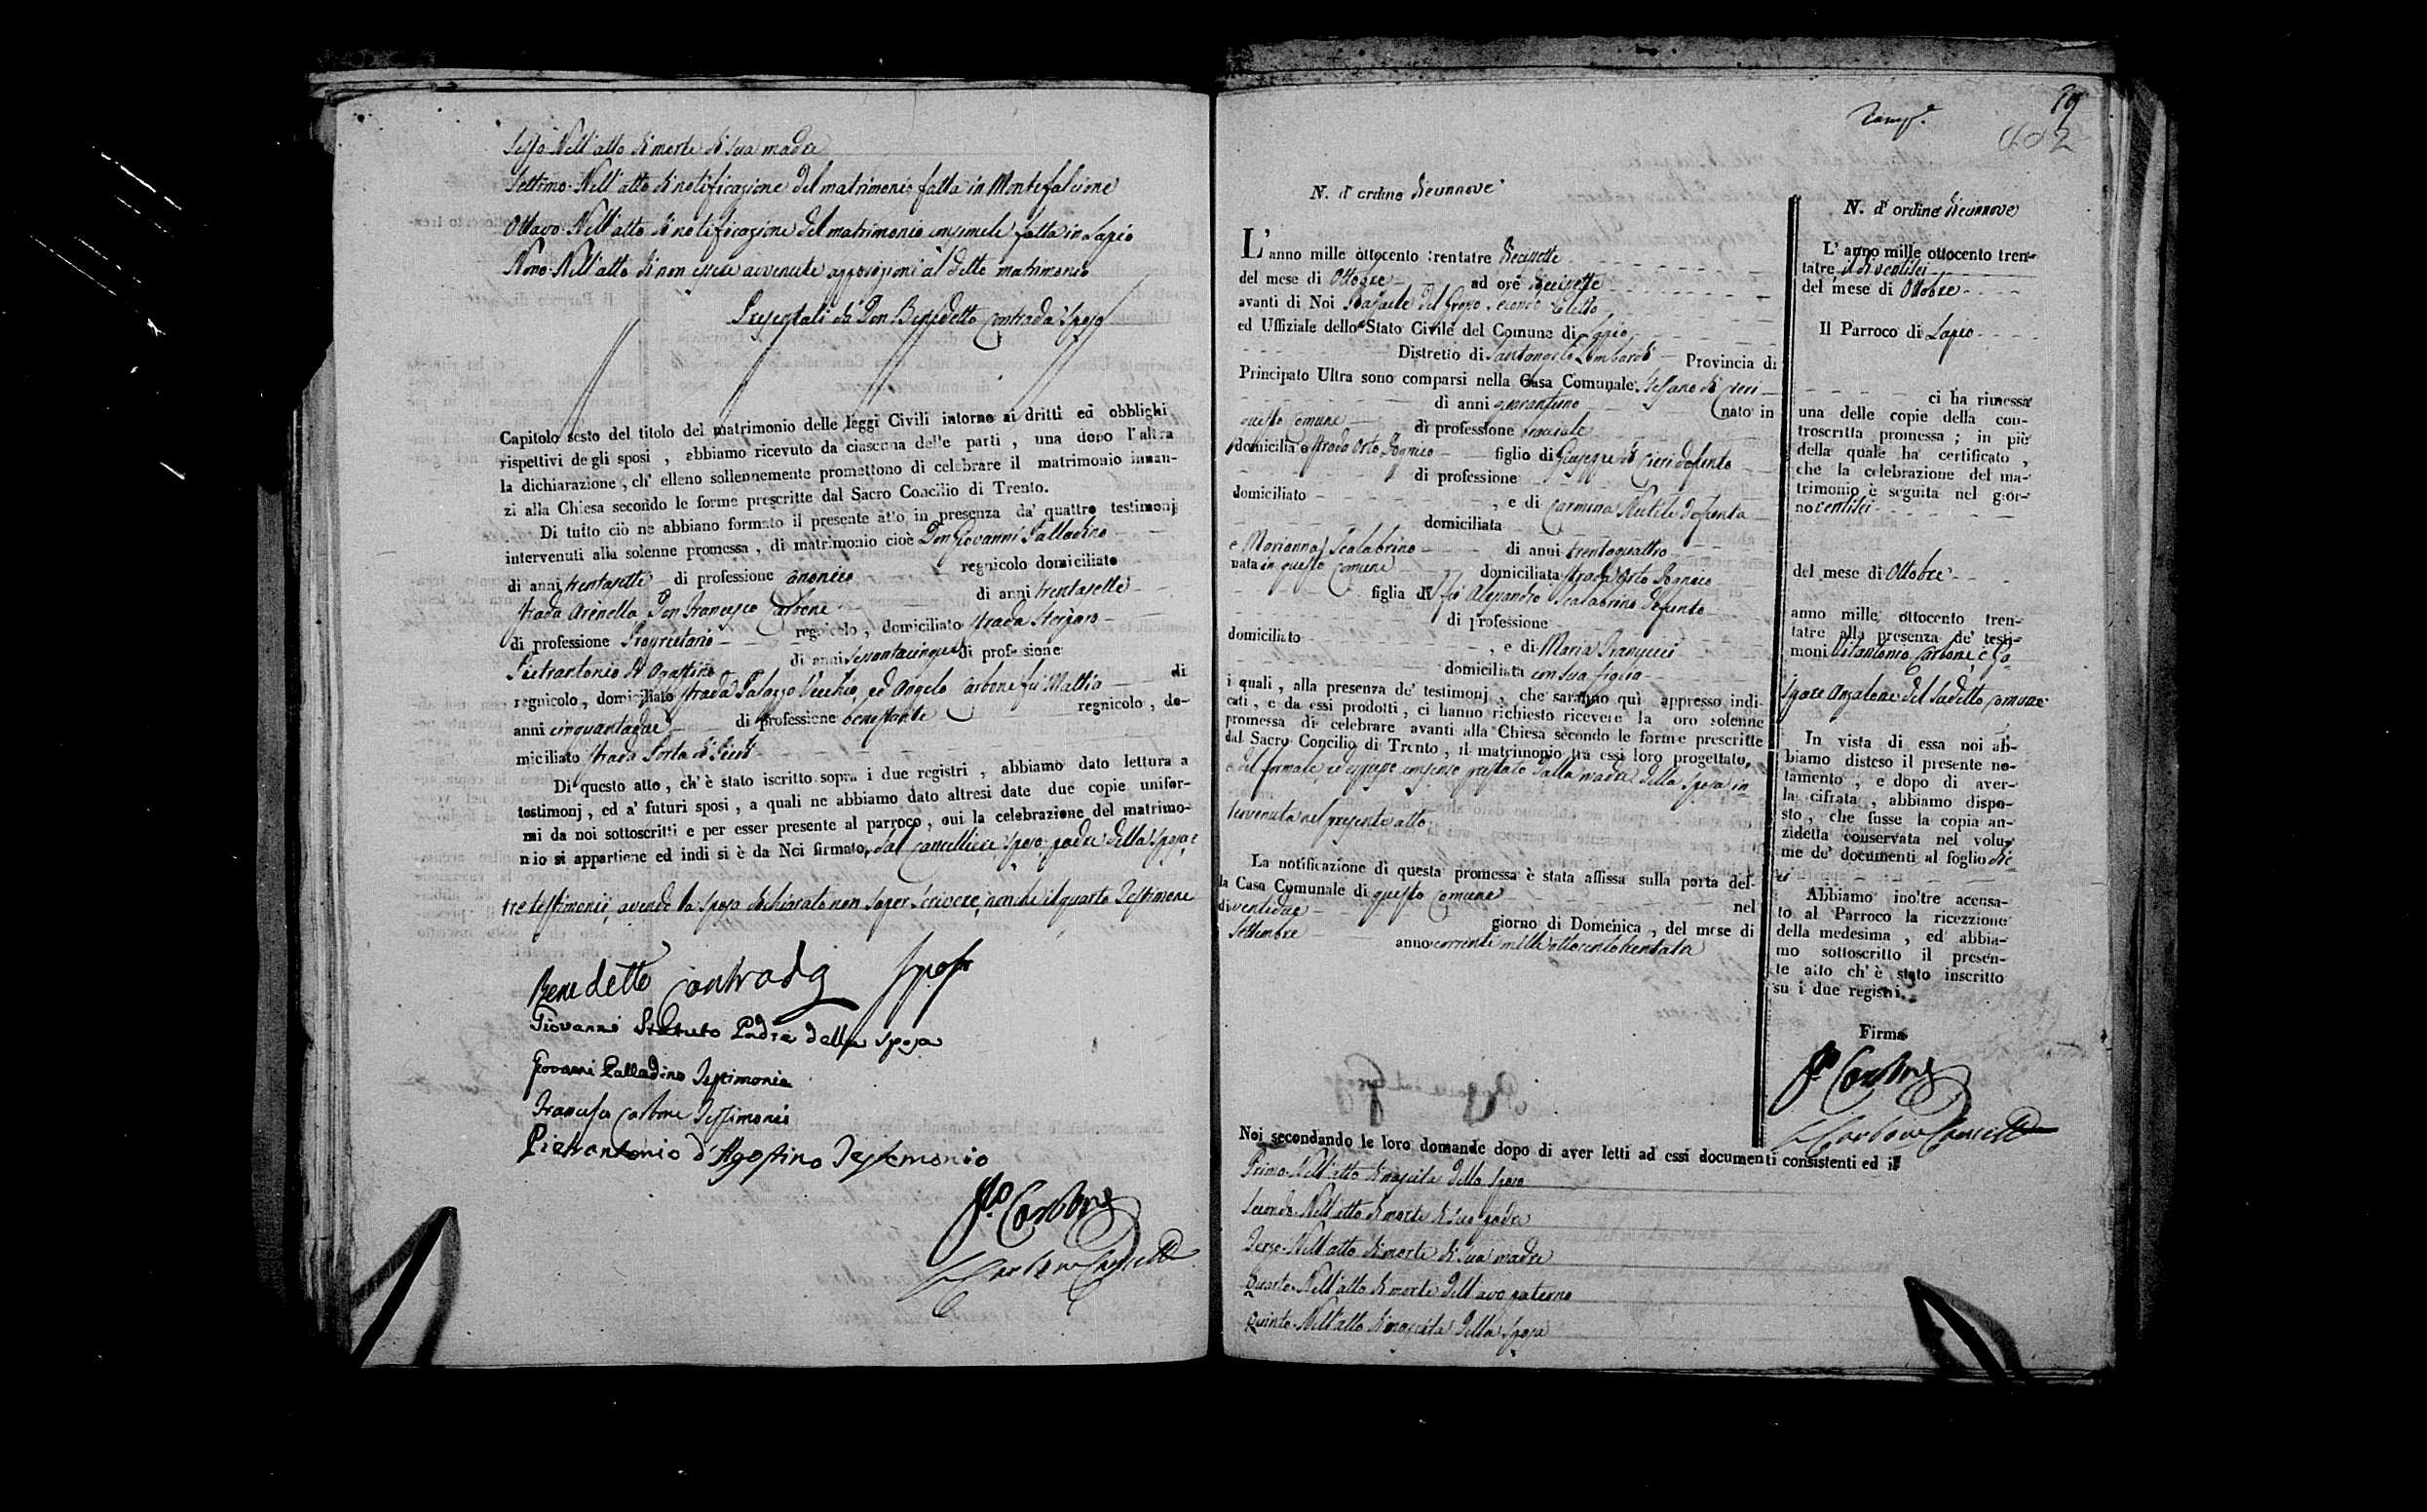 Sesto. Nell'atto di morte di sua madre
Settimo. Nell'atto di notificazione del matrimonio fatta in Montefalcione
Ottavo. Nell'atto di notificazione del matrimonio consimile fatta in Lapio
Nono. Nell'atto di non essere avvenute opposizioni al detto matrimonio
Presentati da Don Benedetto Contrada Sposo
Capitolo sesto del titolo del matrimonio delle leggi Civili intorno ai dritti ed obblighi
rispettivi degli sposi , abbiamo ricevuto da ciascuna delle parti , una dopo l'altra
la dichiarazione , ch' elleno sollennemente promettono di celebrare il matrimonio innan-
zi alla Chiesa secondo le forme prescritte dal Sacro Concilio di Trento.
Di tutto ciò ne abbiano formato il presente atto in presenza da' quattro testimonj
intervenuti alla solenne promessa , di matrimonio cioè Don Giovanni Palladino
di anni trentasette di professione Canonico regnicolo domiciliato
strada Arenella Don Francesco Carbone di anni trentasette
di professione Proprietario regnicolo , domiciliato strada
Pietrantonio d'Agostino di anni sessantacinque di professione
regnicolo , domiciliato strada Palazzo Vecchio, ed Angelo Carbone fu Mattia di
anni cinquantadue di professione benestante regnicolo , do-
miciliato strada Porta di Piedi
Di questo atto , ch' è stato iscritto sopra i due registri , abbiamo dato lettura a
testimonj , ed a' futuri sposi , a quali ne abbiamo dato altresi date due copie unifor-
mi da noi sottoscritti e per esser presente al parroco , cui la celebrazione del matrimo-
nio si appartiene ed indi si è da Noi firmato, dal Cancelliere, sposo, padre della sposa, e
tre testimonii, avendo la sposa dichiarato non saper scrivere, nonché il quarto Testimone
Benedetto Contrada Sposo
Giovanni Padre della sposa
Giovanni Palladino Testimonio
Francesco Carbone Testimonio
Pietrantonio d'Agostino Testemonio
Carbone
Carbone
19
N. d' ordine diecinnove
L'anno mille ottocento trentatre diecisette
del mese di Ottobre ad ore diecisette
avanti di Noi Raffaele del Grosso, secondo Eletto
ed Uffiziale dello Stato Civile del Comune di Lapio
Distretto di Santangelo Lombardi Provincia di
Principato Ultra sono comparsi nella Casa Comunale Stefano di Cieri
di anni quarantuno nato in
questo Comune di professione bracciale
domiciliato strada Orto figlio di Giuseppe di Cieri defunto
di professione
domiciliato , e di Carmina defunta
domiciliata
e Marianna Scalabrino di anni trentaquattro
nata in questo Comune domiciliata strada Orto
figlia di fu Alesandro Scalabrino defunto
di professione
domiciliato , e di Maria
domiciliata con sua figlia
i quali , alla presenza de' testimonj , che saranno quì appresso indi-
cati , e da essi prodotti , ci hanno richiesto ricevere la oro solenne
promessa di celebrare avanti alla Chiesa secondo le forme prescritte
dal Sacro Concilio di Trento , il matrimonio tra essi loro progettato,
e del formale ed espresso consenso prestato dalla madre della sposa in-
tervenuta nel presente atto
La notificazione di questa promessa è stata affissa sulla porta del-
la Casa Comunale di questo Comune nel
di ventidue giorno di Domenica , del mese di
Settembre anno corrente mille ottocento trentatre
Noi secondando le loro domande dopo di aver letti ad essi documenti consistenti ed il
Primo. Nell'atto di nascita dello sposo
Secondo. Nell'atto di morte di suo padre
Terzo. Nell'atto di morte di sua madre
Quarto. Nell'atto di morte dell'avo paterno
Quinto. Nell'atto di nascita della sposa
N. d' ordine diecinnove
L' anno mille ottocento tren-
tatre il di ventisei
del mese di Ottobre
Il Parroco di Lapio
ci ha rimessa
una delle copie della con-
troscritta promessa ; in piè
della quale ha certificato ,
che la celebrazione del ma-
trimonio è seguita nel gior-
no ventisei
del mese di Ottobre
anno mille ottocento tren-
tatre alla presenza de' testi-
moni Vitantonio Carbone, e Ga-
spare Anzalone del sudetto Comune
In vista di essa noi ab-
biamo disteso il presente no-
tamento , e dopo di aver-
la cifrata , abbiamo dispo-
sto , che fusse la copia an-
zidetta conservata nel volu-
me de' documenti al foglio die-
ci
Abbiamo inoltre accusa-
to al Parroco la ricezzione
della medesima , ed abbia-
mo sottoscritto il presen-
te atto ch' è stato inscritto
su i due registri.
Firma
Carbone
Carbone